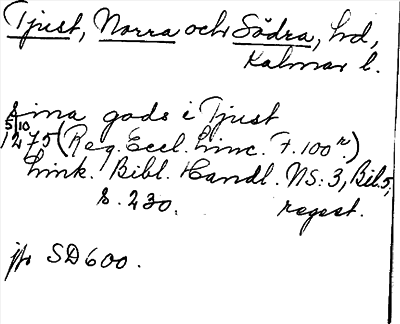 Tjust, Norra och Södra, hd,
Kalmar l.
Sina gods i Tjust
5/10
1275 (Reg. Eccl. Linc. F. 100 r.)
Link. Bibl. Handl. NS: 3, Bil. 5,
s. 230. regest.
jfr SD 600.